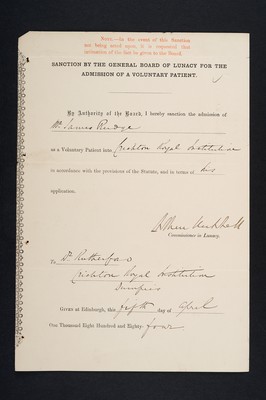 NOTE.—In the event of this Sanction
not being acted upon, it is requested that
intimation of the fact be given to the Board.
SANCTION BY THE GENERAL BOARD OF LUNACY FOR THE
ADMISSION OF A VOLUNTARY PATIENT.
By Authority of the Board, I hereby sanction the admission of
Mr James Rudge
as a Voluntary Patient into Crichton Royal Institution
in accordance with the provisions of the Statute, and in terms of his
application.
Arthur Mitchell
Commissioner in Lunacy.
To Dr Rutherford
Crichton Royal Institution
Dumfries
Given at Edinburgh, this fifth day of April
One Thousand Eight Hundred and Eighty-four